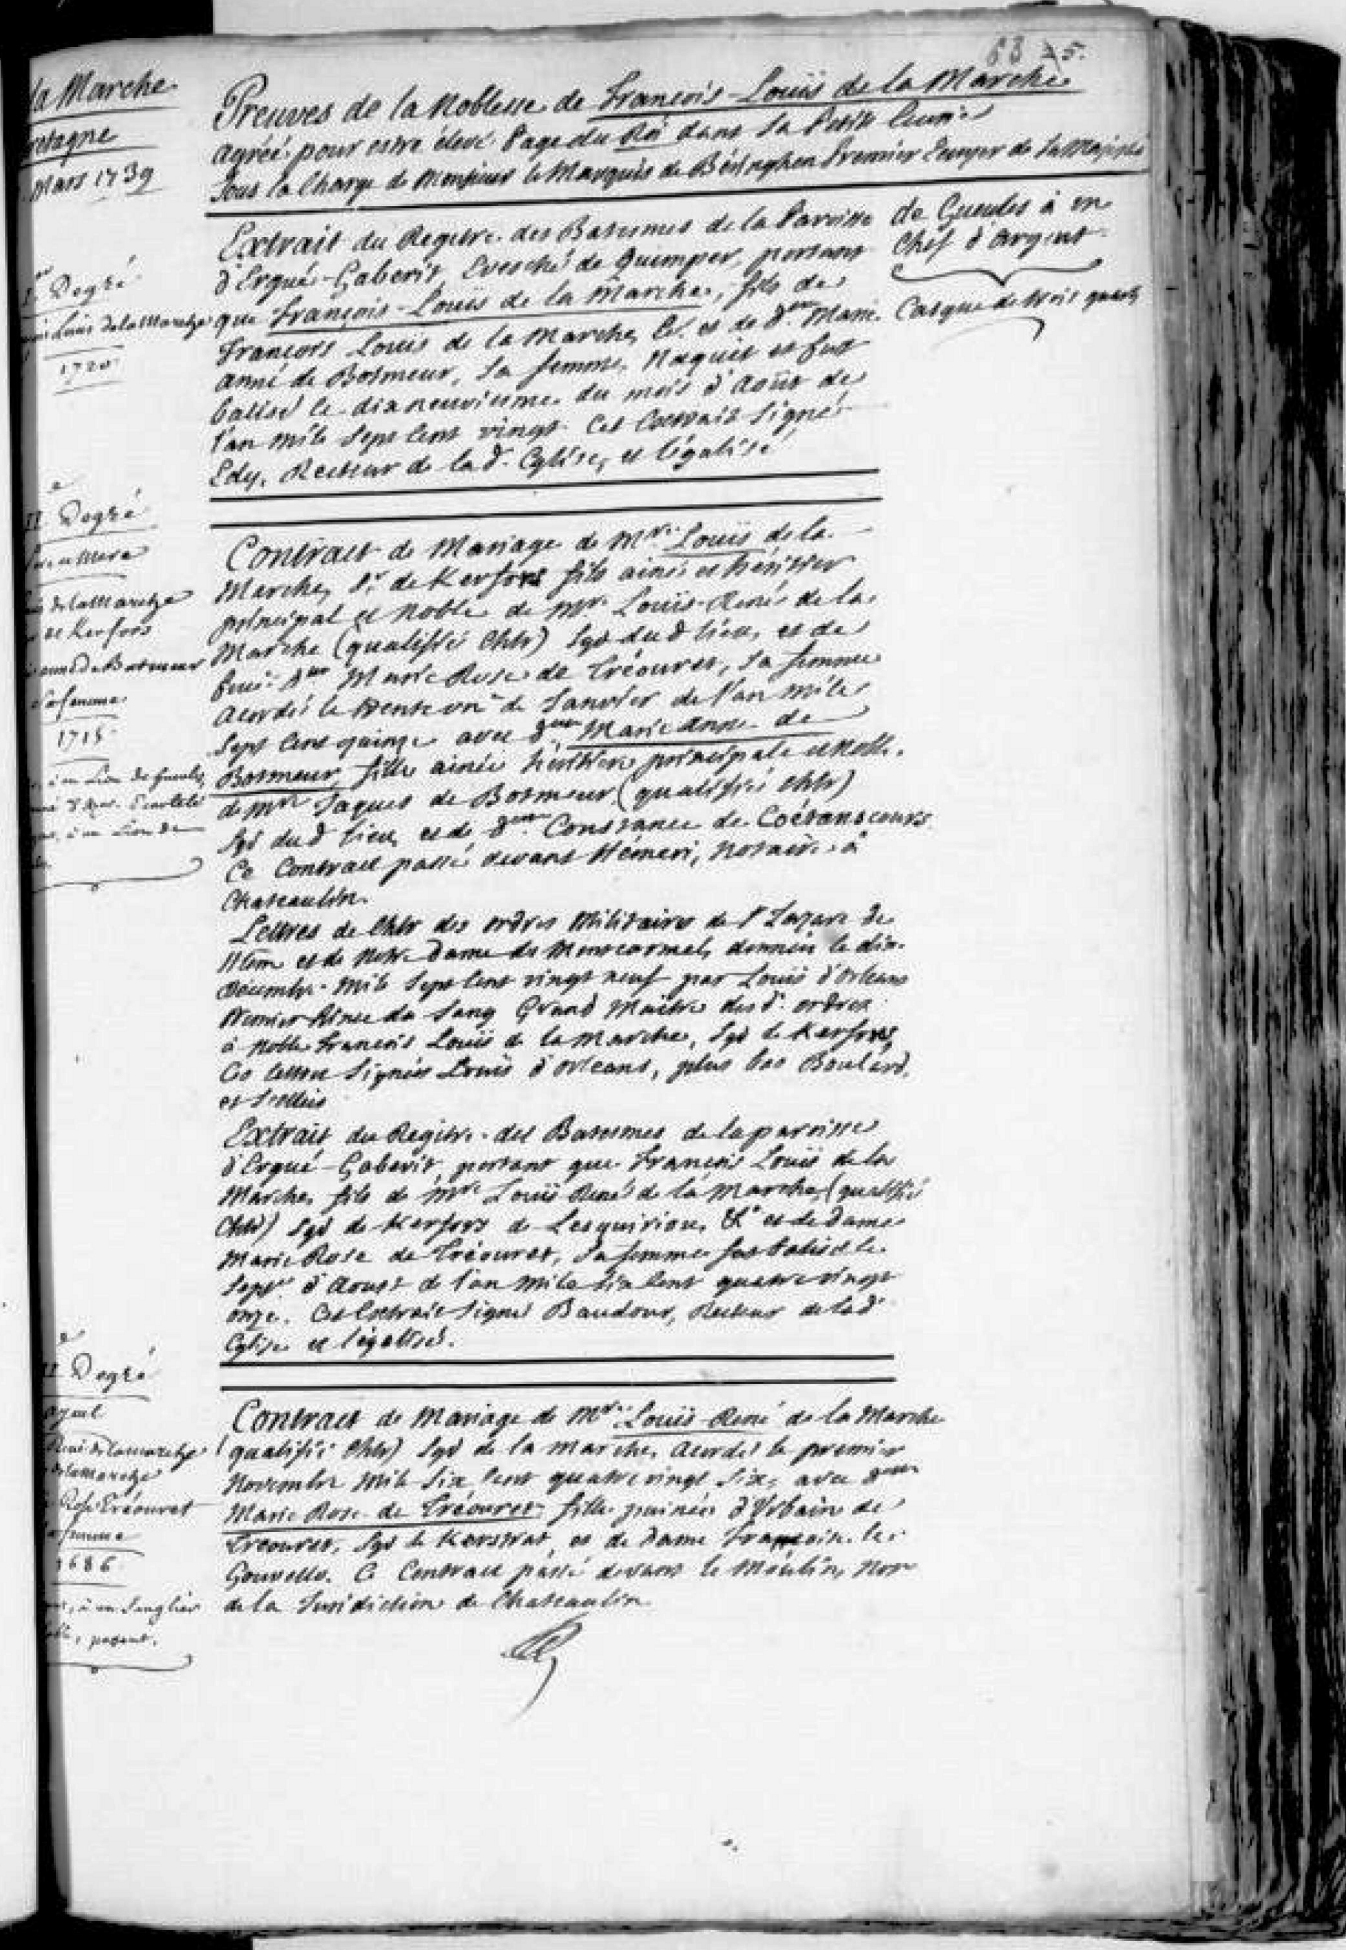 63 25.
la Marche
retagne
Mars 1739
Preuves de la Noblesse de François-Louïs de la Marche
agréé pour estre élevé Page du Roi dans sa Petite Ecurie
sous la Charge de Monsieur le Marquis de Béringhen Premier Ecuyer de Sa Majesté
de Gueules à un
Chef d'Argent
Casque de trois quarts
Degré
Louis de la Marche
1720
Extrait du Regitre des Batesmes de la Paroisse
d'Ergué-Gaberit, Evesché de Quimper, portant
que François-Louïs de la Marche, fils de
François Louis de la Marche, et de de Marie
Anne de Botmeur, sa femme, Naquit et fut
batisé le dixneuvieme du mois d'Août de
l'an mile sept cent vingt. Cet Extrait signé
Edy, Recteur de la de Eglise, et légalisé
II Degré
et Mere
de la Marche
de Kerfors
anne de Botmeur
sa femme
1715
à un Lion de gueules,
Ecartelé
à un Lion de
Contract de Mariage de Mre Louïs de la
Marche, Sr de Kerfors fils ainé et héritier
principal et Noble de Mre Louis-René de la
Marche (qualifié Chlr) Sgr du d lieu, et de
feue de Marie Rose de Tréouret, sa femme
acordé le trente un de Janvier de l'an mile
sept cent quinze avec delle Marie Anne de
Botmeur fille ainée héritiere principale et Noble
de Mre Jaques de Botmeur (qualifié Chlr)
Sgr du d lieu, et de de Constance de Coëtanscours
Ce Contract passé devant Hémeri, Notaire à
Chateaulin.
Lettres de Chlr des ordres Militaires de St Lazare de
Jlem et de Notre Dame du Montcarmel, données le dix
Decembre mile sept cent vingt neuf par Louis d'Orleans
Premier Prince du Sang Grand Maitre des ds ordres
à Noble François Louïs de la Marche, Sgr de Kerfors,
Ces lettres signées Louis d'Orleans, plus bas Boulard,
et scellées
Extrait du Regitre des Batesmes de la paroisse
d'Ergué-Gaberit, portant que François Louïs de la
Marche, fils de Mre Louïs René de la Marche, (qualifié
Chlr) Sgr de Kerfors de Lesquiriou, &a et de dame
Marie Rose de Tréouret, sa femme fut batisé le
sept d'Aoust de l'an mile six cent quatre vingt
onze. Cet Extrait signé Baudour, Recteur de la de
Eglise et légalisé.
Degré
Ayeul
René de la Marche
de la Marche
Rose Tréouret
sa femme
1686
à un Sanglier
passant.
Contract de Mariage de Mre Louïs-René de la Marche
(qualifié Chlr) Sgr de la Marche, acordé le premier
Novembre mile six cent quatre vingt six, avec delle
Marie Rose de Tréouret fille puinée d'Urbain de
Tréouret, Sgr de Kerstrat, et de Dame Françoise le
Gouvello. Ce Contract passé devant le Moulin, Nore
de la Juridiction de Chateaulin